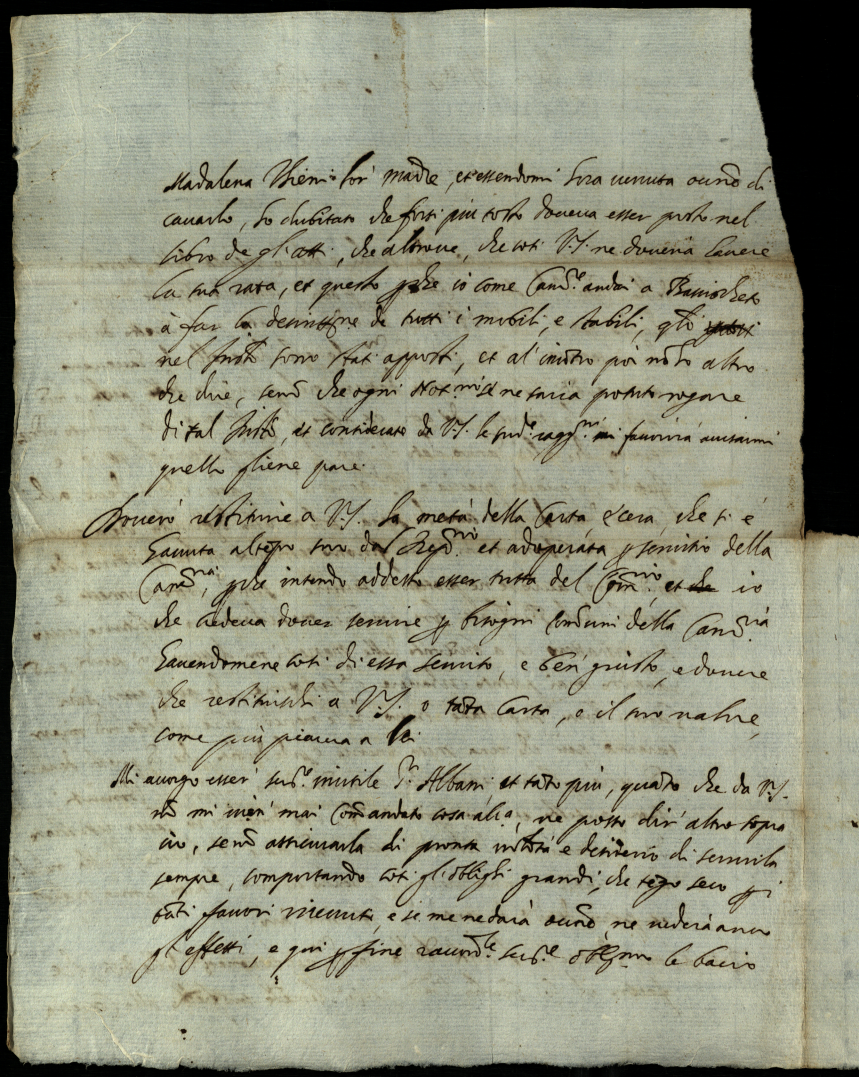 Madalena Thieni lor' madre, et essendomi hora venuta occõne di
cavarlo, ho dubitato che forsi più tosto doveva esser posto nel
libro de gl'atti, che altrove, che cosi V.S. ne doveria havere
la sua rata, et questo p̱che io come Canc.re andai a
à far la descrittne de tutti i mobili, e stabili, q̃li
nel sono stati apposti, et al incõtro poi nõ so altro
che dire, senõ che ogni Not.rio ne saria potuto rogare
di tal et considerato da V.S. le sud.e ragg.ni mi favorirà avisarmi
quello gliene pare.
Dovero restituire a V.S. la metà della Carta, e cera, che si è
havuta al tẽpo suo dal et adoperata p̱ servitio della
Canc.ria, p̱che intendo addesso esser tutta del et che io
che credeva dover servire p̱ bisogni cõmuni della Canc.ria
havendomene cosi di essa servito, e ben giusto, e dovere
che restituischi a V.S. o tãta Carta, o il suo valore,
come più piacera a lei.
Mi accorgo esser' ser.re inutile S.r Albani, et tãto più, quãto che da V.S.
nõ mi vien' mai comãndato cosa alc.a, ne posso dir' altro sopra
ciò, senõ assicurarla di pronta volõtà e desiderio di servirla
sempre, comportando cosi gl'oblighi grandi, che tẽgo seco p̱ i
tãti favori ricevuti, e se me ne darà occõne, ne vederà anco
gl'effetti, e qui p̱ fine ser.re oblig.mo le bacio